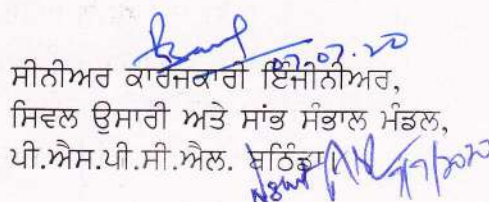 07.07.20
ਸੀਨੀਅਰ ਕਾਰਜਕਾਰੀ ਇੰਜੀਨੀਅਰ,
ਸਿਵਲ ਉਸਾਰੀ ਅਤੇ ਸਾਂਭ ਸੰਭਾਲ ਮੰਡਲ,
ਪੀ.ਐਸ.ਪੀ.ਸੀ.ਐਲ. ਬਠਿੰਡਾ।